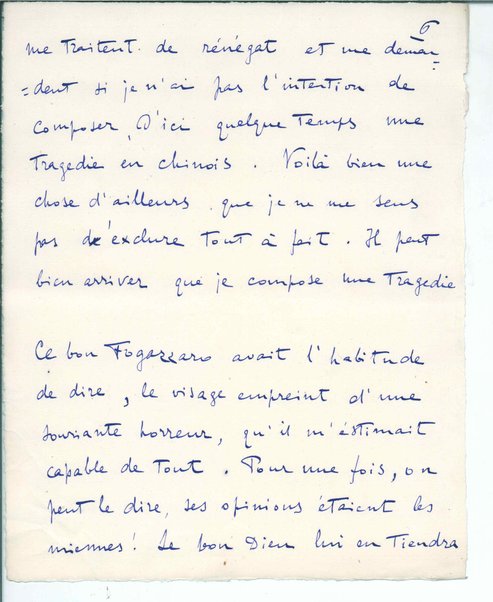 6
me traitent de rénégat et me deman=
=dent si je n'ai pas l'intention de
composer, d'ici quelque temps une
tragedie en chinois. Voilà bien une
chose d'ailleurs que je ne me sens
pas d'exclure tout à fait. Il peut
bien arriver que je compose une tragedie
Ce bon Fogazzaro avait l'habitude
de dire, le visage empreint d'une
souriante horreur, qu'il m'éstimait
capable de tout. Pour une fois, on
peut le dire, ses opinions étaient les
miennes! Le bon Dieu lui en tiendra